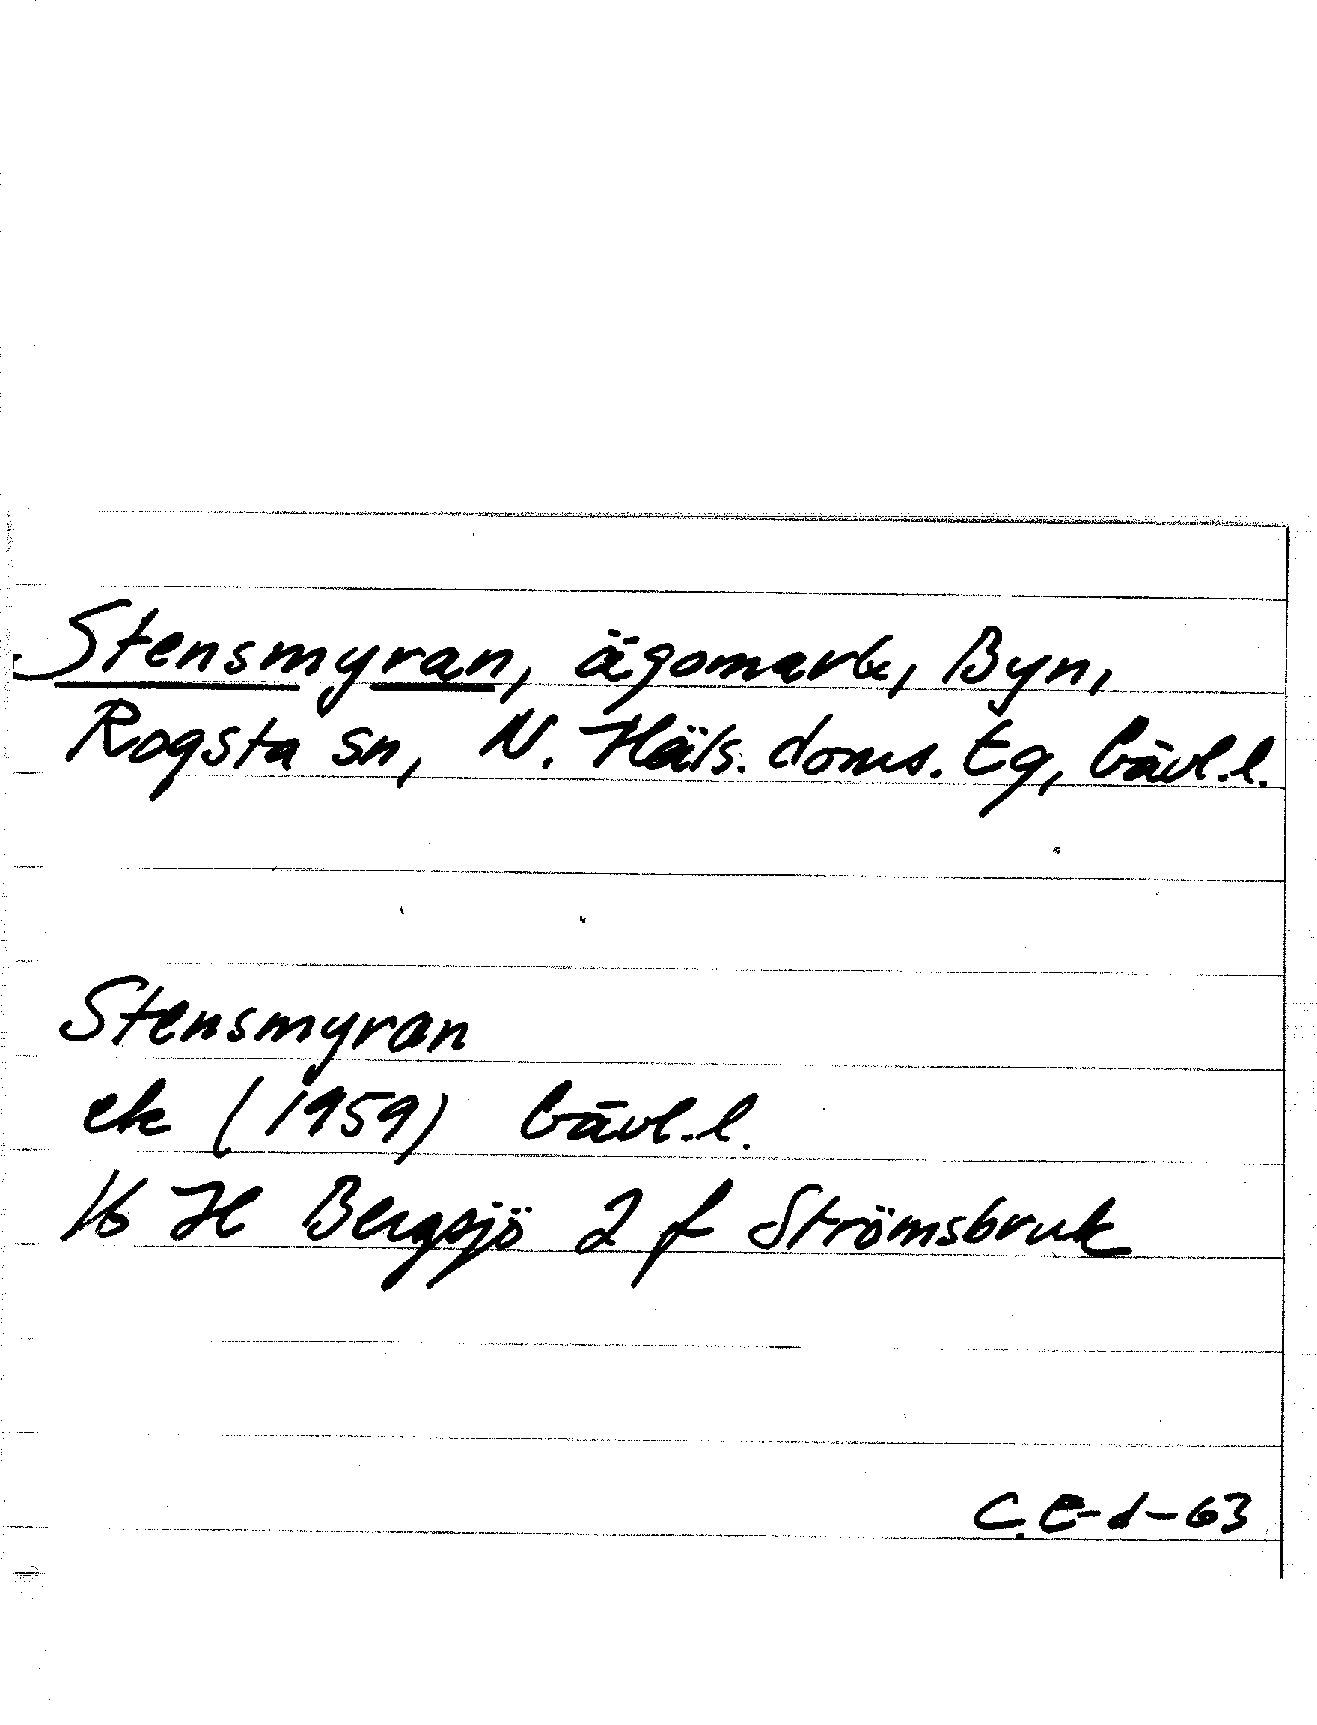 Stensmyran, ägomark, Byn,
Rogsta sn, N. Häls. doms. tg, Gävl. l.
Stensmyran
ek (1959) Gävl. l.
16 H Bergsjö 2 f Strömsbruk
C. E-d-63